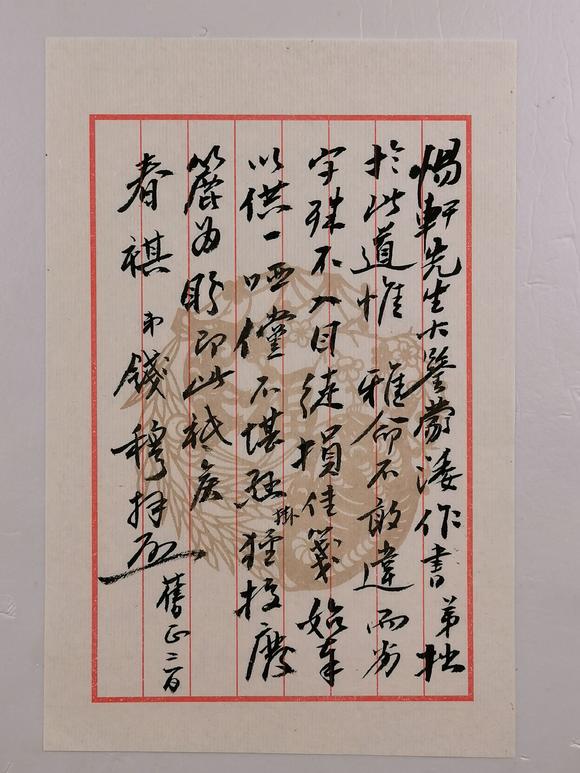 惕軒先生大鑒蒙諉作書弟拙
於此道惟 雅命不敢違而劣
字殊不入目徒損佳箋始奉
以供一哂儻不堪張掛徑投廢
簏為盼即此祗矦
春祺 弟錢穆拜啟
舊正二日